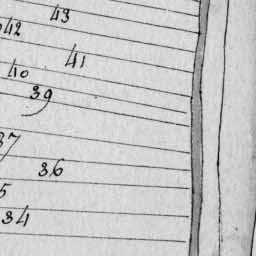 43
42
41
40
39
37
36
5
34